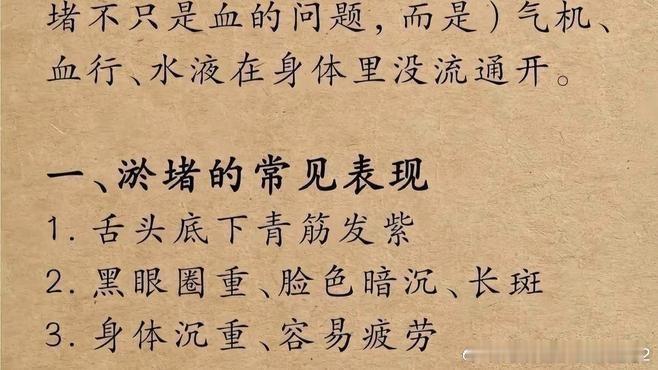 堵不只是血的问题，而是）气机、
血行、水液在身体里没流通开。
一、淤堵的常见表现
1. 舌头底下青筋发紫
2. 黑眼圈重、脸色暗沉、长斑
3. 身体沉重、容易疲劳